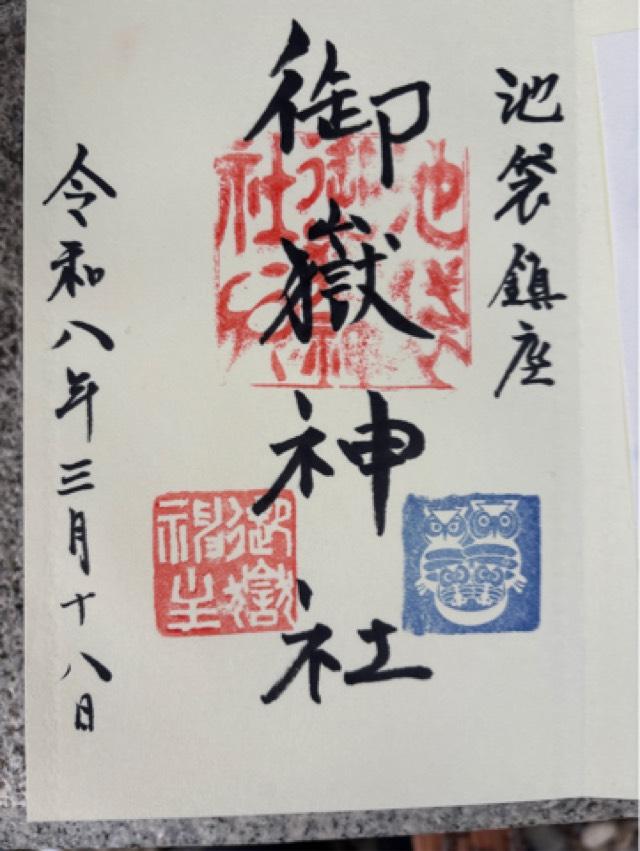 池袋鎮座
御嶽神社
令和八年三月十八日
池袋
御嶽神
社
御嶽
神主